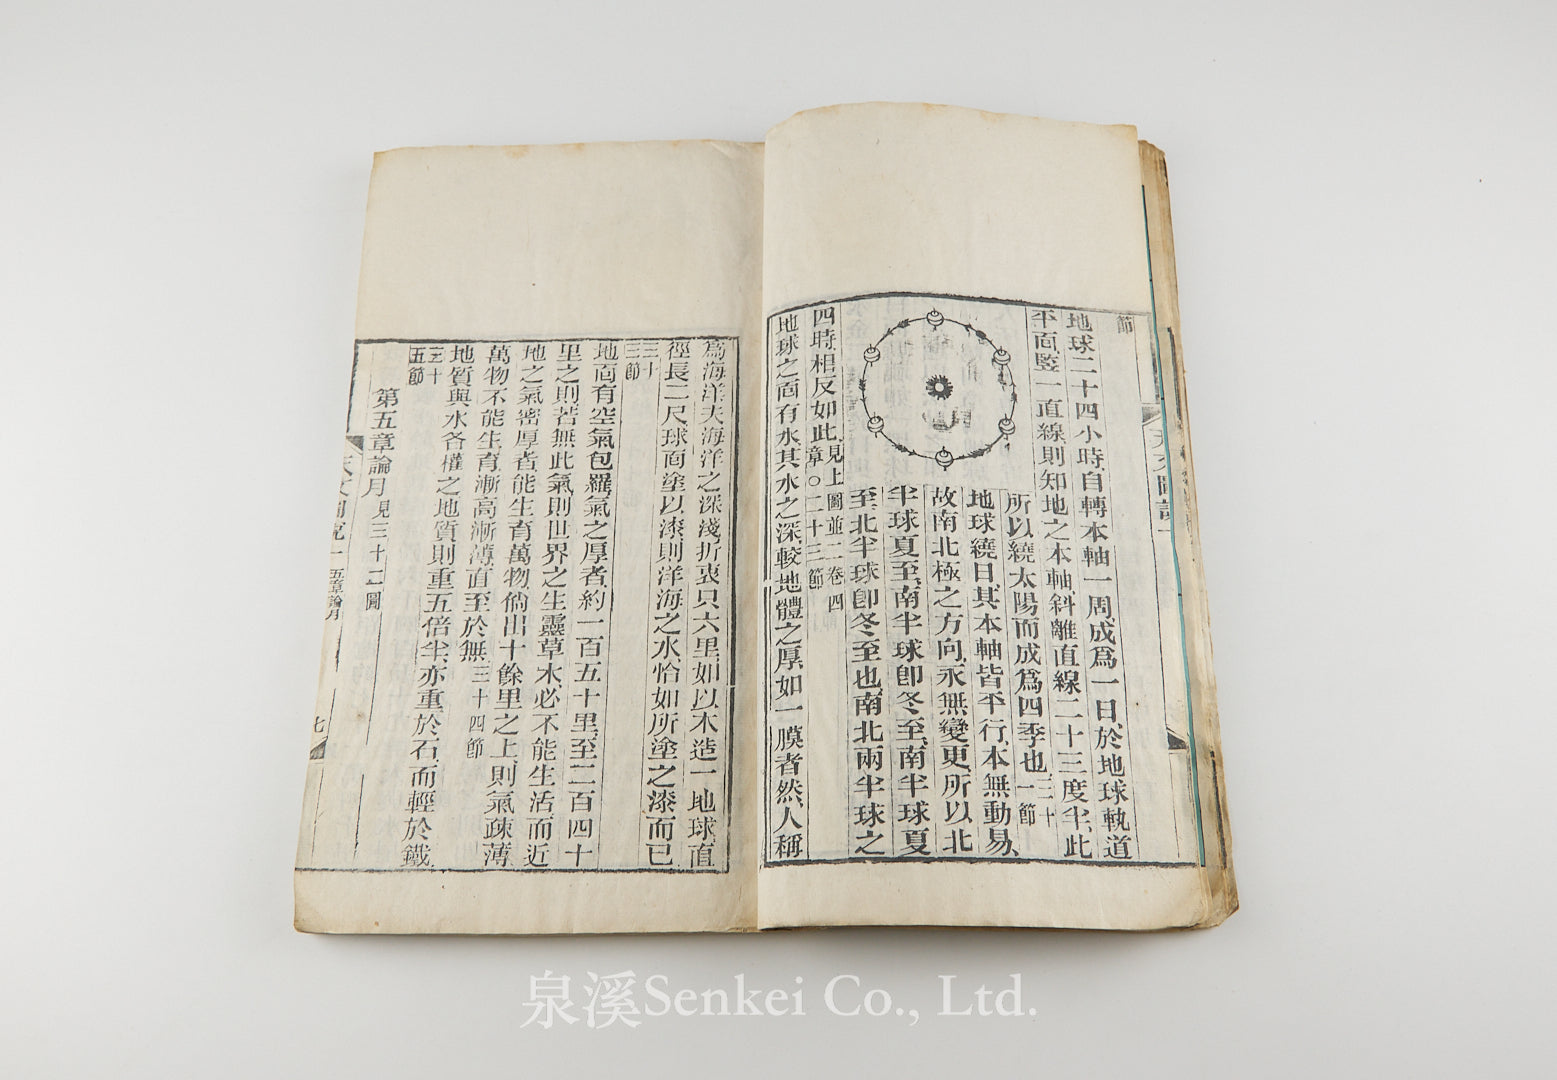 節
地球二十四小時自轉本軸一周、成爲一日、於地球軌道
平面、竪一直線、則知地之本軸、斜離直線二十三度半、此
所以繞太陽而成爲四季也、三十一節
地球繞日、其本軸皆平行、本無動易、
故南北極之方向、永無變更、所以北
半球夏至、南半球卽冬至、南半球夏
至、北半球卽冬至也、南北兩半球之
四時相反如此、見上圖並二卷四章〇二十三節
地球之面有水、其水之深、較地體之厚、如一膜者然、人稱
爲海洋、夫海洋之深淺、折衷只六里、如以木造一地球、直
徑長二尺、球面塗以漆、則洋海之水、恰如所塗之漆而已
三十三節
地面有空氣包羅、氣之厚者、約一百五十里、至二百四十
里之則、若無此氣、則世界之生靈草木、必不能生活、而近
地之氣密厚者、能生育萬物、倘出十餘里之上、則氣疎薄、
萬物不能生育、漸高漸薄、直至於無、三十四節
地質與水各權之、地質則重五倍半、亦重於石、而輕於鐵
三十五節
第五章論月 見三十二圖
天文圖說一 五章論月 七
泉溪Senkei Co., Ltd.